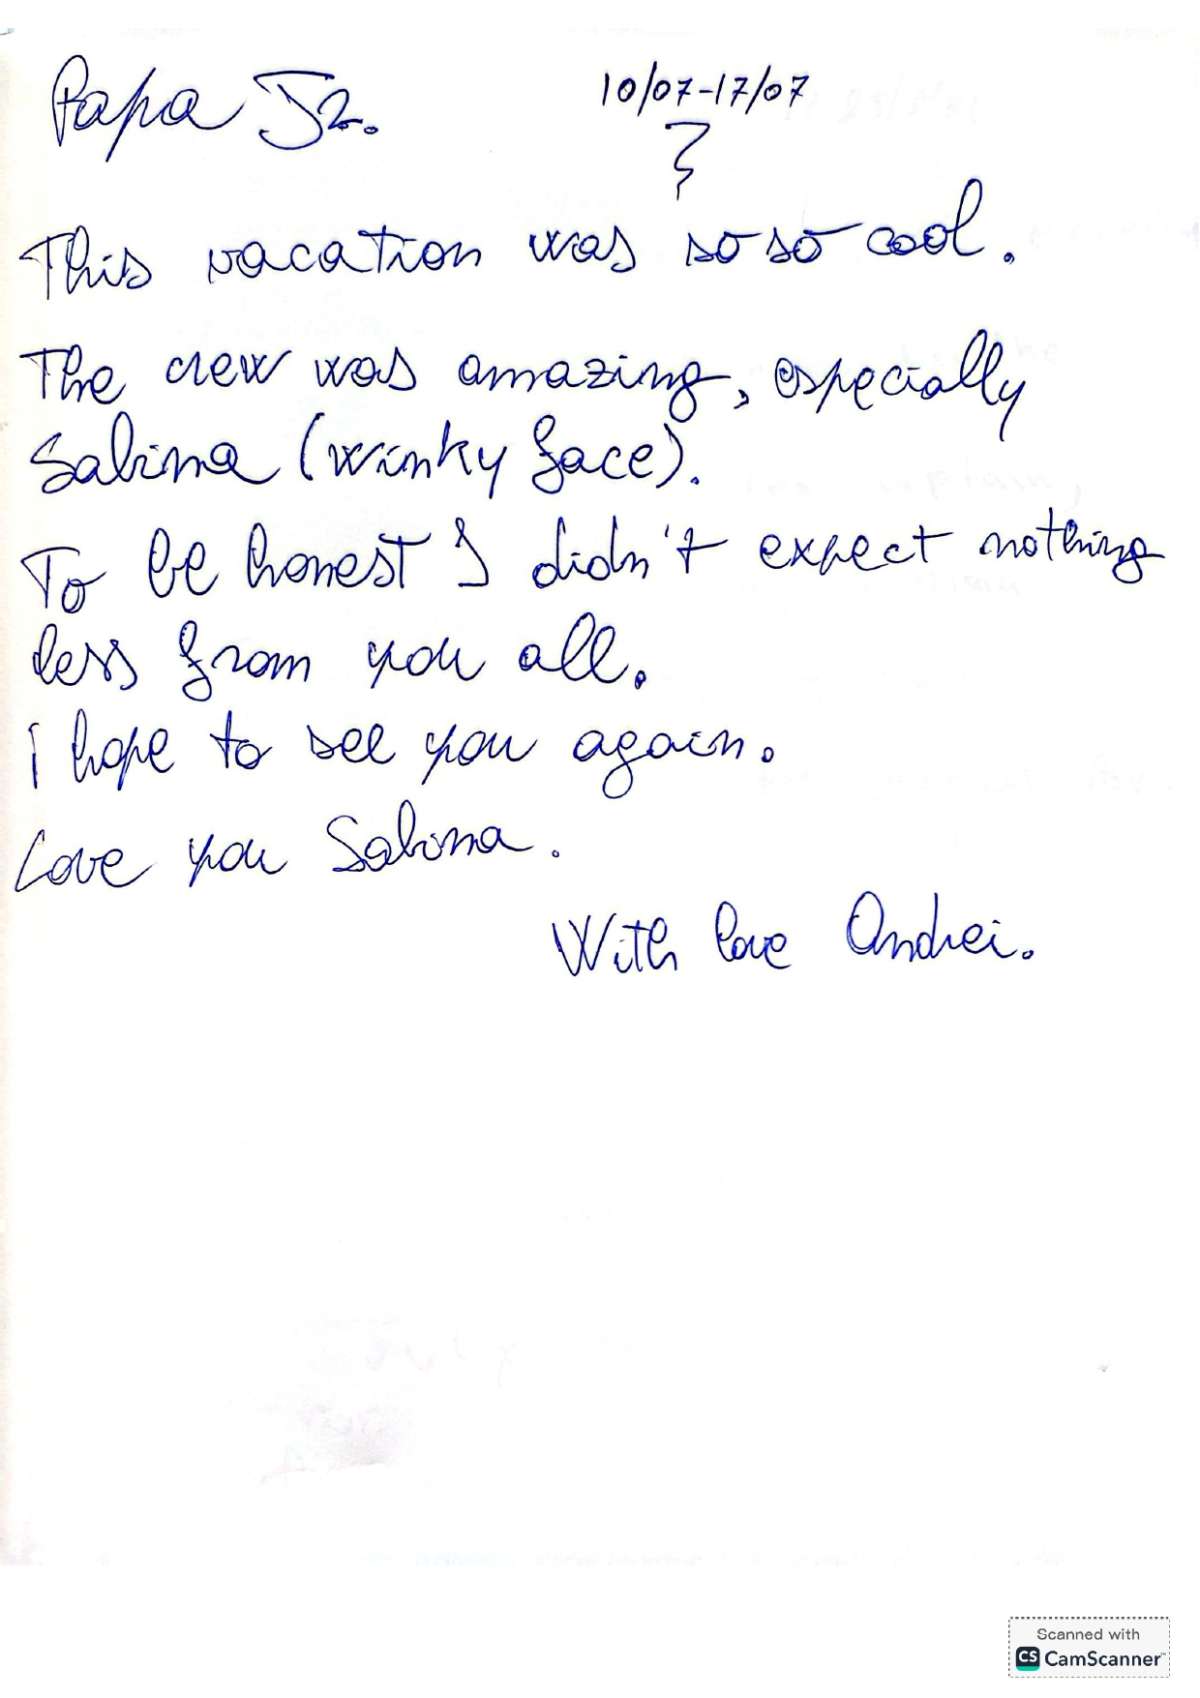 Papa Jr.
10/07-17/07
This vacation was so so cool.
The crew was amazing, especially
Sabina (winky face).
To be honest I didn't expect nothing
less from you all.
i hope to see you again.
Love you Sabina.
With love Andrei.
Scanned with
CS CamScanner